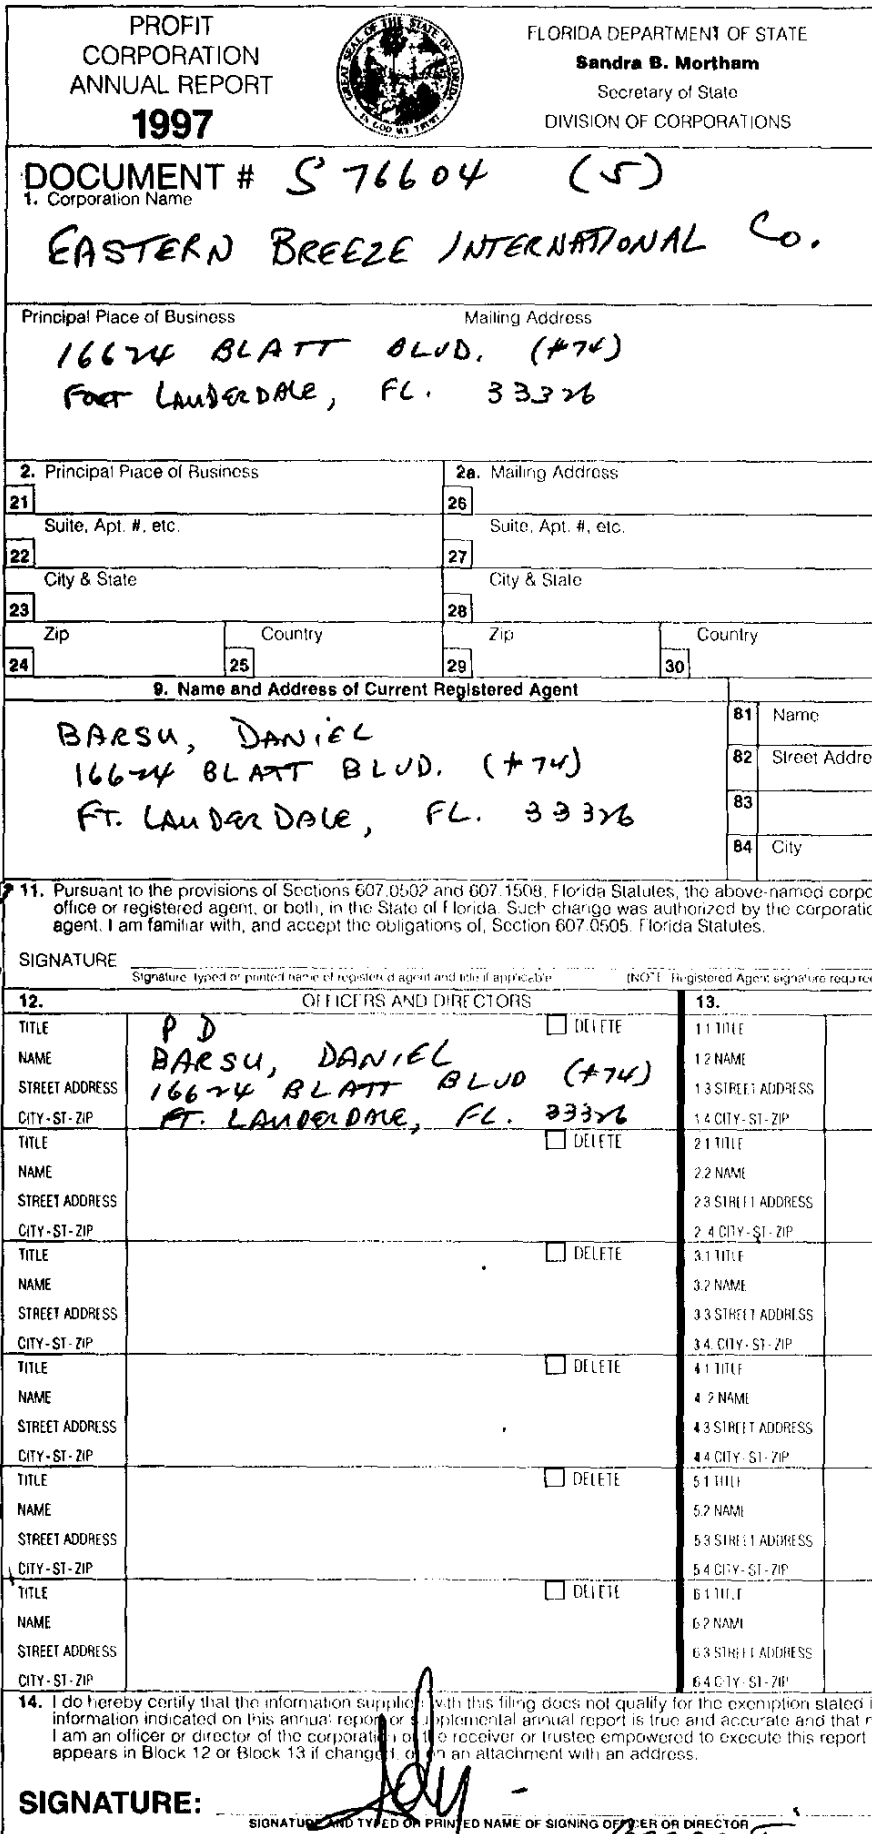 PROFIT
CORPORATION
ANNUAL REPORT
1997
GREAT SEAL OF THE STATE OF FLORIDA
IN GOD WE TRUST
FLORIDA DEPARTMENT OF STATE
Sandra B. Mortham
Secretary of State
DIVISION OF CORPORATIONS
DOCUMENT # S 76604 (5)
1. Corporation Name
EASTERN BREEZE INTERNATIONAL Co.
Principal Place of Business Mailing Address
16624 BLATT BLVD. (#74)
FORT LAUDERDALE, FL. 33326
2. Principal Place of Business 2a. Mailing Address
21 26
Suite, Apt. #, etc. Suite, Apt. #, etc.
22 27
City & State City & State
23 28
Zip Country Zip Country
24 25 29 30
9. Name and Address of Current Registered Agent
BARSU, DANIEL
16624 BLATT BLVD. (#74)
FT. LAUDERDALE, FL. 33326
81 Name
82 Street Addre
83
84 City
11. Pursuant to the provisions of Sections 607.0502 and 607.1508, Florida Statutes, the above-named corpo
office or registered agent, or both, in the State of Florida. Such change was authorized by the corporatio
agent. I am familiar with, and accept the obligations of, Section 607.0505, Florida Statutes.
SIGNATURE
Signature, typed or printed name of registered agent and title if applicable (NOTE: Registered Agent signature require
12. OFFICERS AND DIRECTORS 13.
TITLE P D DELETE 1.1 TITLE
NAME BARSU, DANIEL 1.2 NAME
STREET ADDRESS 16624 BLATT BLVD (#74) 1.3 STREET ADDRESS
CITY-ST-ZIP FT. LAUDERDALE, FL. 33326 1.4 CITY-ST-ZIP
TITLE DELETE 2.1 TITLE
NAME 2.2 NAME
STREET ADDRESS 2.3 STREET ADDRESS
CITY-ST-ZIP 2.4 CITY-ST-ZIP
TITLE DELETE 3.1 TITLE
NAME 3.2 NAME
STREET ADDRESS 3.3 STREET ADDRESS
CITY-ST-ZIP 3.4. CITY-ST-ZIP
TITLE DELETE 4.1 TITLE
NAME 4.2 NAME
STREET ADDRESS 4.3 STREET ADDRESS
CITY-ST-ZIP 4.4 CITY-ST-ZIP
TITLE DELETE 5.1 TITLE
NAME 5.2 NAME
STREET ADDRESS 5.3 STREET ADDRESS
CITY-ST-ZIP 5.4 CITY-ST-ZIP
TITLE DELETE 6.1 TITLE
NAME 6.2 NAME
STREET ADDRESS 6.3 STREET ADDRESS
CITY-ST-ZIP 6.4 CITY-ST-ZIP
14. I do hereby certify that the information supplied with this filing does not qualify for the exemption stated i
information indicated on this annual report or supplemental annual report is true and accurate and that m
I am an officer or director of the corporation or the receiver or trustee empowered to execute this report
appears in Block 12 or Block 13 if changed, or on an attachment with an address.
SIGNATURE:
SIGNATURE AND TYPED OR PRINTED NAME OF SIGNING OFFICER OR DIRECTOR